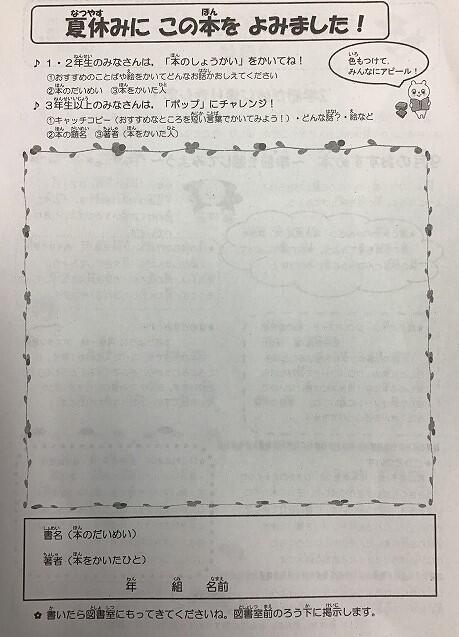 夏休みに この本を よみました！
♪ 1・2年生のみなさんは，「本のしょうかい」をかいてね！
①おすすめのことばや絵をかいてどんなお話かおしえてください
②本のだいめい　③本をかいた人
色もつけて，
みんなにアピール！
♪ 3年生以上のみなさんは，「ポップ」にチャレンジ！
①キャッチコピー（おすすめなところを短い言葉でかいてみよう！）・どんな話？・絵など
②本の題名　③著者（本をかいた人）
書名（本のだいめい）
著者（本をかいたひと）
年　組　名前
✿ 書いたら図書室にもってきてくださいね。図書室前のろう下に掲示します。